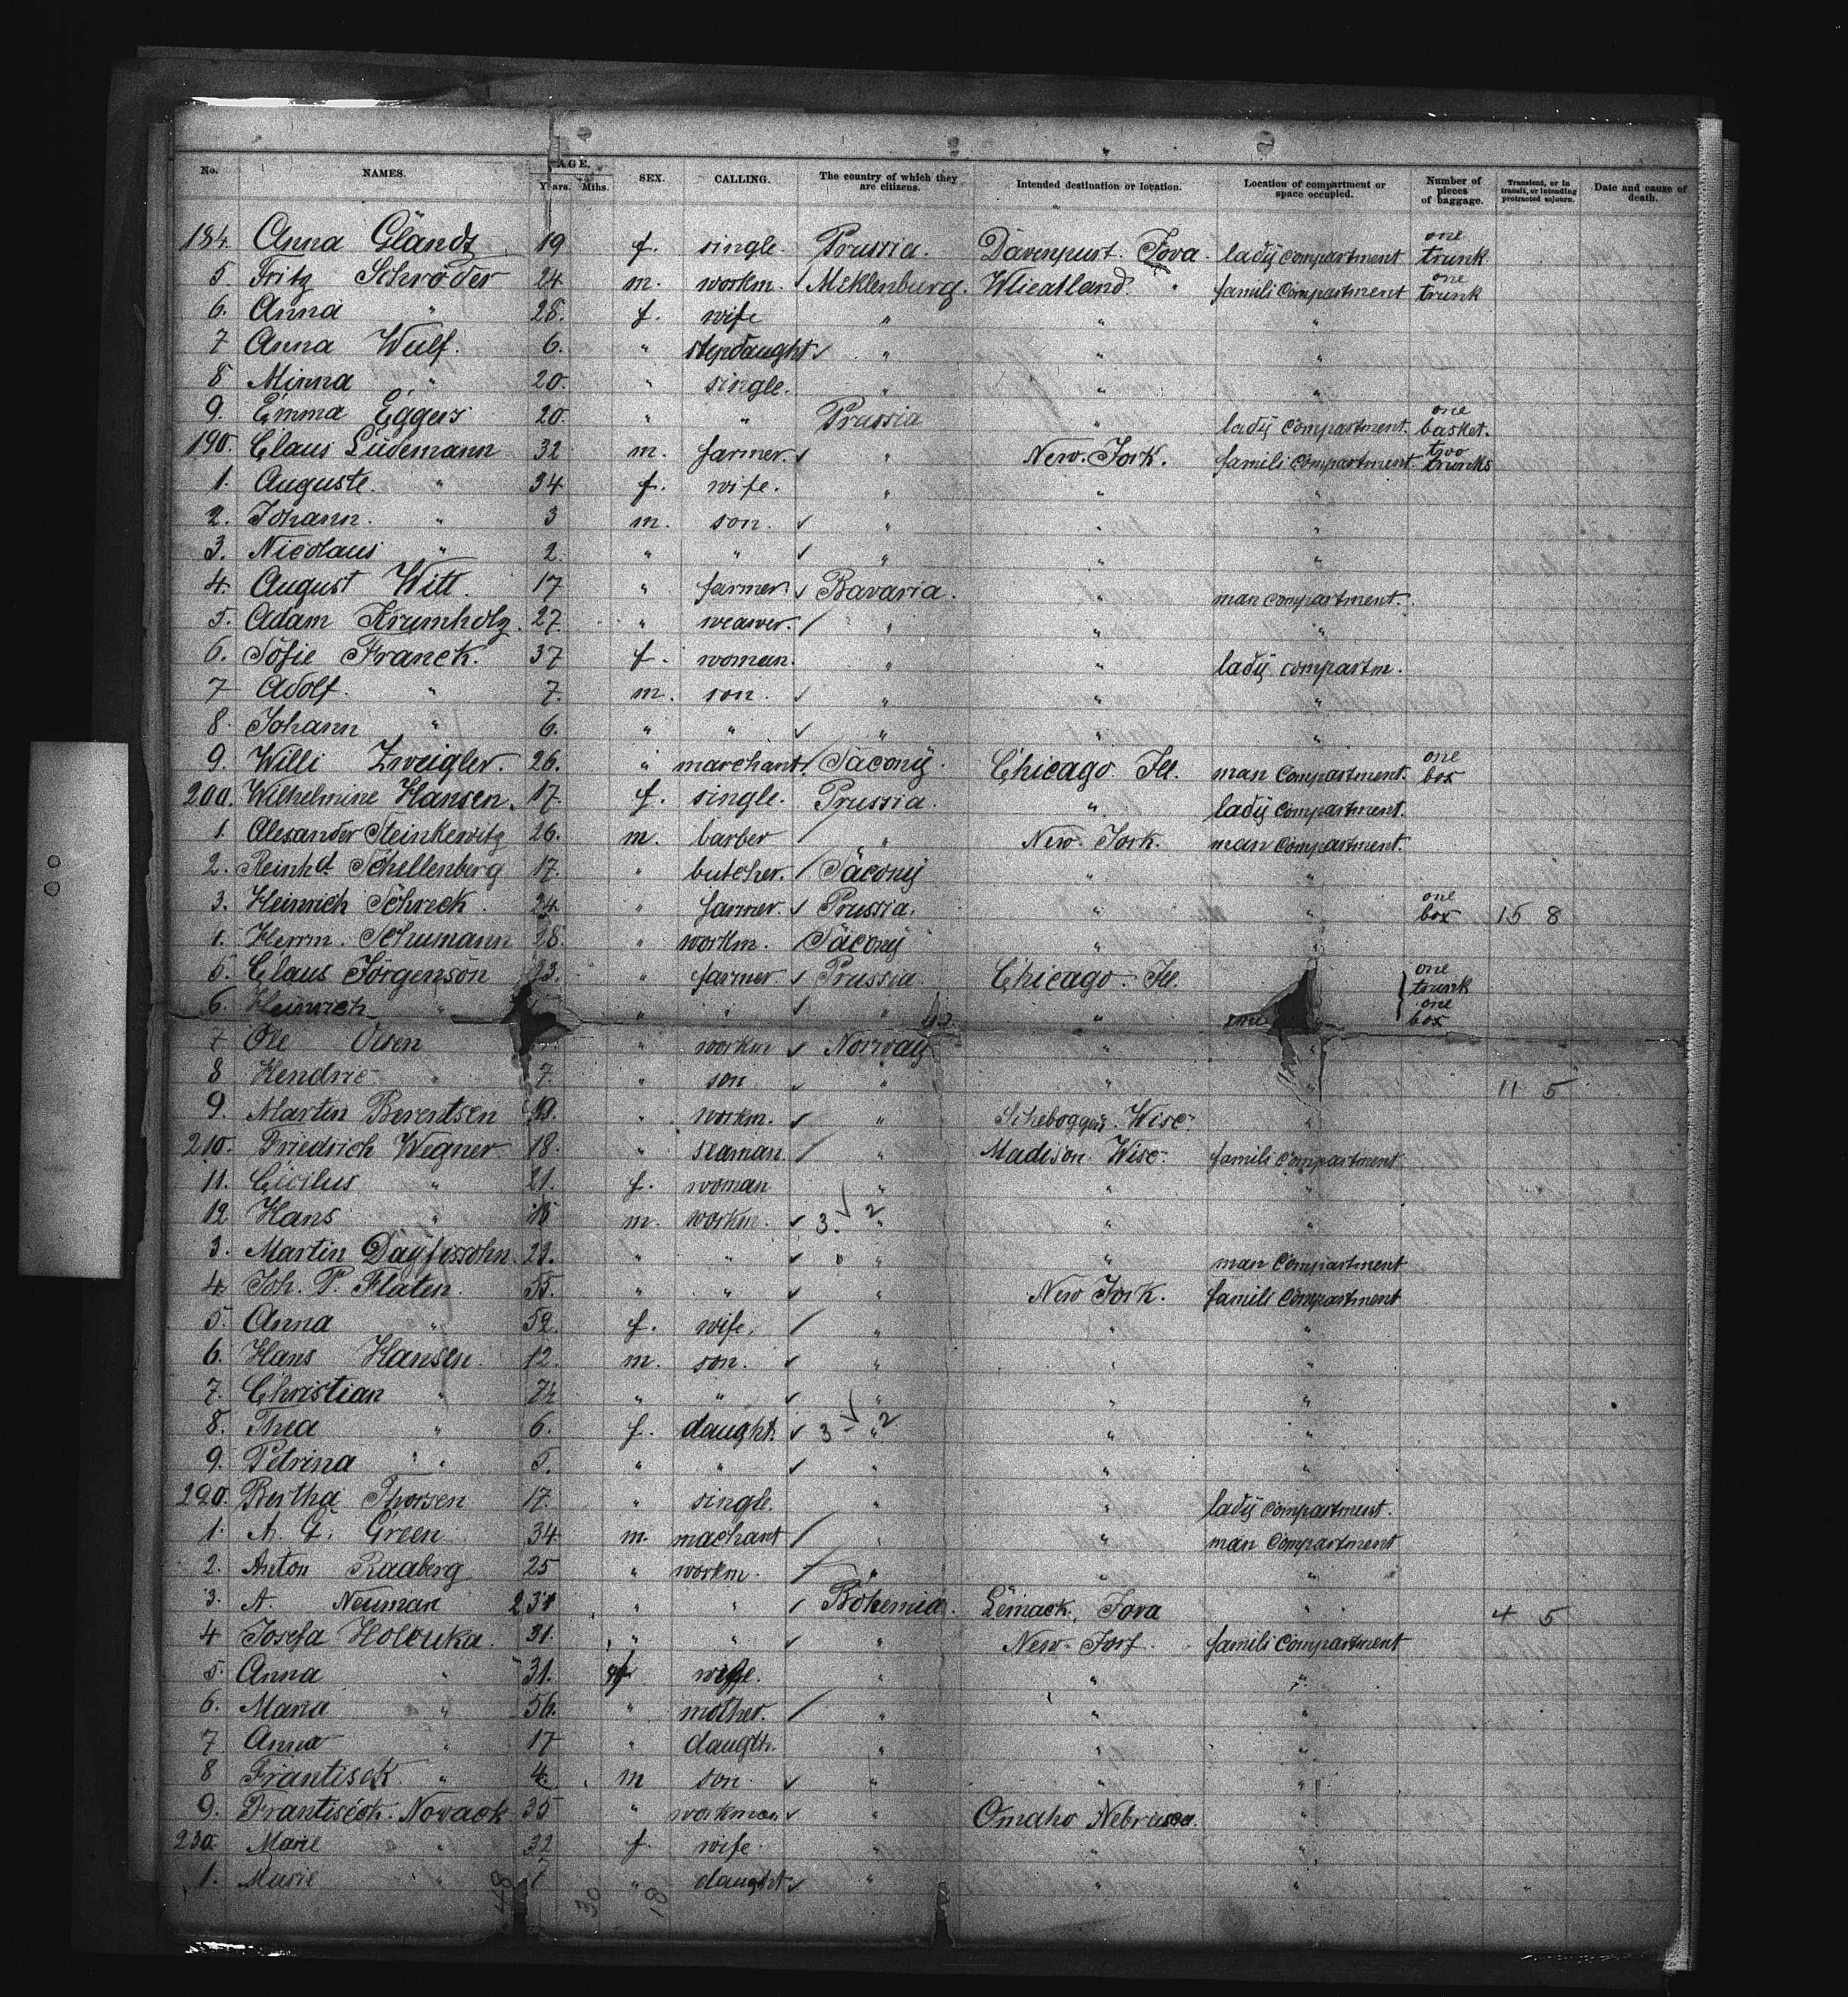 No. NAMES. AGE. Years. Mths. SEX. CALLING. The country of which they are citizens. Intended destination or location. Location of compartment or space occupied. Number of pieces of baggage. Transient, or in transit, or intending protracted sojourn. Date and cause of death.
184. Anna Glandt 19 f. single. Prussia. Davenpurt. Iova. ladÿ compartment one trunk.
5. Fritz Schröder 24 m. workm. Meklenburg. Wheatland. " famili compartment one trunk
6. Anna " 28. f. wife " " "
7 Anna Wulf. 6. " stepdaught ✓ " " "
8 Minna " 20. " single. " " "
9. Emma Eggers 20. " " Prussia " ladÿ compartment. one basket.
190. Claus Lüdemann 32 m. farmer. ✓ " New-York. famili compartment two trunks
1. Auguste. " 34 f. wife. " " "
2. Johann. " 3 m. son. ✓ " " "
3. Nicolaus " 2. " " ✓ " " "
4. August Witt. 17 " farmer ✓ Bavaria. " man compartment.
5. Adam Krumholz. 27 " weawer. / " " "
6. Sofie Franck. 37 f. woman. " " ladÿ compartm.
7 Adolf. " 7. m. son. ✓ " " "
8. Johann " 6. " " ✓ " " "
9. Willi Zweigler. 26. " marchant / Sacony. Chicago Ill. man compartment. one box
200. Wilhelmine Hansen. 17. f. single. Prussia. " ladÿ compartment.
1. Alesander Steinkewitz 26. m. barber / " New-York. man compartment.
2. Reinhd. Schellenberg 17. " butcher. / Sacony " "
3. Heinrich Schreck. 24 " farmer. ✓ Prussia. " " one box 15 8
4. Herrm. Schumann 28. " workm. / Sacony " "
5. Claus Jörgensön 23. " farmer ✓ Prussia. Chicago-Ill. one trunk
6. Heinrich " " " ✓ " " one box
7 Ole Olsen " workm ✓ Norway " "
8 Hendric " 7. " son ✓ " " " 11 5
9. Martin Berentsen 19. " workm. ✓ " Wisc. "
210. Friedrich Wegner 18. " seaman. / " Madison Wisc. famili compartment
11. Cicilus " 21. f. woman " " "
12 Hans " m. workm. ✓ 3. ✓ 2 " " "
3. Martin 23. " " ✓ " " man compartment
4 Joh. P. Flaten. 55. " " ✓ " New York. famili compartment
5. Anna " 52. f. wife. / " " "
6. Hans Hansen. 12. m. son. ✓ " " "
7. Christian " " " ✓ " " "
8. Thea " 6. f. daught. ✓ 3 ✓ " 2 " "
9. Petrina " 5. " " ✓ " " "
220. Bertha Thorsen 17. " single. " " ladÿ compartment.
1. A. G. Green 34 m. machant / " " man compartment
2. Anton Raaberg 25 " workm. / " " "
3. A. Neuman " " / Bohemia. Iova " 4 5
4 Josefa Holouka. 31. " " ✓ " New-York. famili compartment
5. Anna " 31. f wife. " " "
6. Maria " 56. " mother. / " " "
7 Anna " 17 " daugth. " " "
8 Frantisek. " 4. m son. ✓ " " "
9. Frantisek. Nowack 35 " workman ✓ " Omaho Nebrasca. "
230. Marie " 32 f. wife. " " "
1. Marie " 7 " daught. ✓ " " "
48 30 18